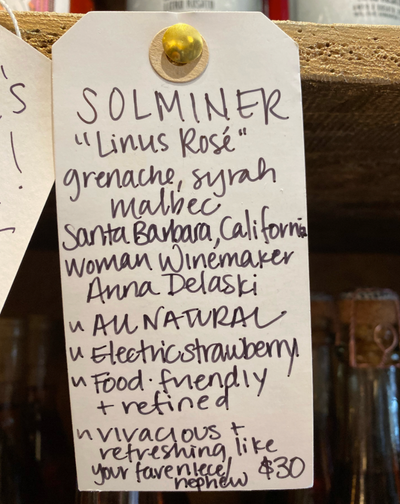 SOLMINER
"Linus Rosé"
grenache, syrah
malbec
Santa Barbara, California
Woman Winemaker
Anna Delaski
ALL NATURAL
Electric strawberry
Food-friendly
+ refined
vivacious +
refreshing, like
your fave niece/
nephew $30
's
!